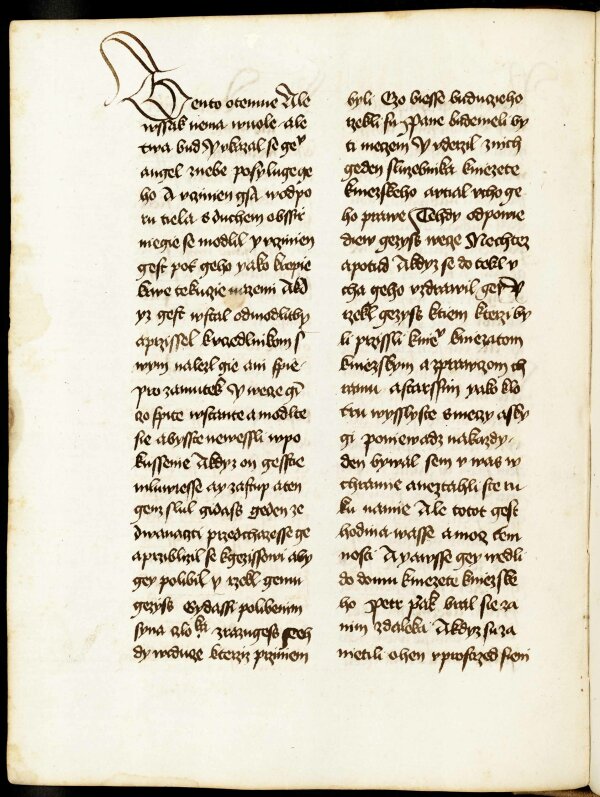 Tento ote mne Ale
wssak nema wuole ale
twa bud Y vkazal se gemu
angel znebe posyluge ge
ho A vczinen gsa wodpo
ru tiela s duchem obssir
niegie se modlil y vczinien
gest pot geho yako krepie
krwe tekuczie nazemi A kd
yz gest wstal od modlitby
a przissel k vczedlnikom s
wym nalezl gie ani spie
pro zamutek Y wece gim
czo spite wstante a modlte
sie abysste newessli w po
kussenie A kdyz on gesstie
mluwiesse ay zastup a ten
genz slul gidass geden ze
dwanaczti przedchazesse ge
a prziblizil se k gezissowi aby
gey polibil y rzekl gemu
gezyss Gydassi polibenim
syna czlowieka zrazugess Teh
dy widuce kterziz przi niem
byli Czo biesse buduczieho
rzekli su Pane budemeli by
ti meczem Y vderzil z nich
geden sluzebnika kniezete
kniezskeho a vtial vcho ge
ho prawe Tehdy odpowie
diew gezyss wece Nechtez
apotud A kdyz se do tekl v
cha geho vzdrawil gey Y
rzekl gezyss k tiem kterzi by
li przissli k niemu kniezatom
knieszkym a zprawczom ch
ramu a starssim yako k lo
tru wysslyste s meczy a s ky
gi poniewadz nakazdy
den bywal sem v was w
chramie a neztahli ste ru
ku na mie Ale totot gest
hodina wasse a mocz tem
nosti A yawsse gey wedli
do domu kniezete kniezske
ho Petr pak bral sie za
nim zdaleka A kdyz su za
nietili ohen v prostrzed sieni